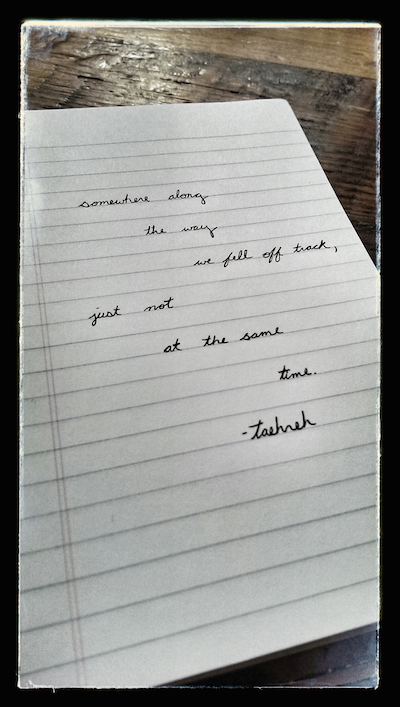 somewhere along
the way
we fell off track,
just not
at the same
time.
-taehreh